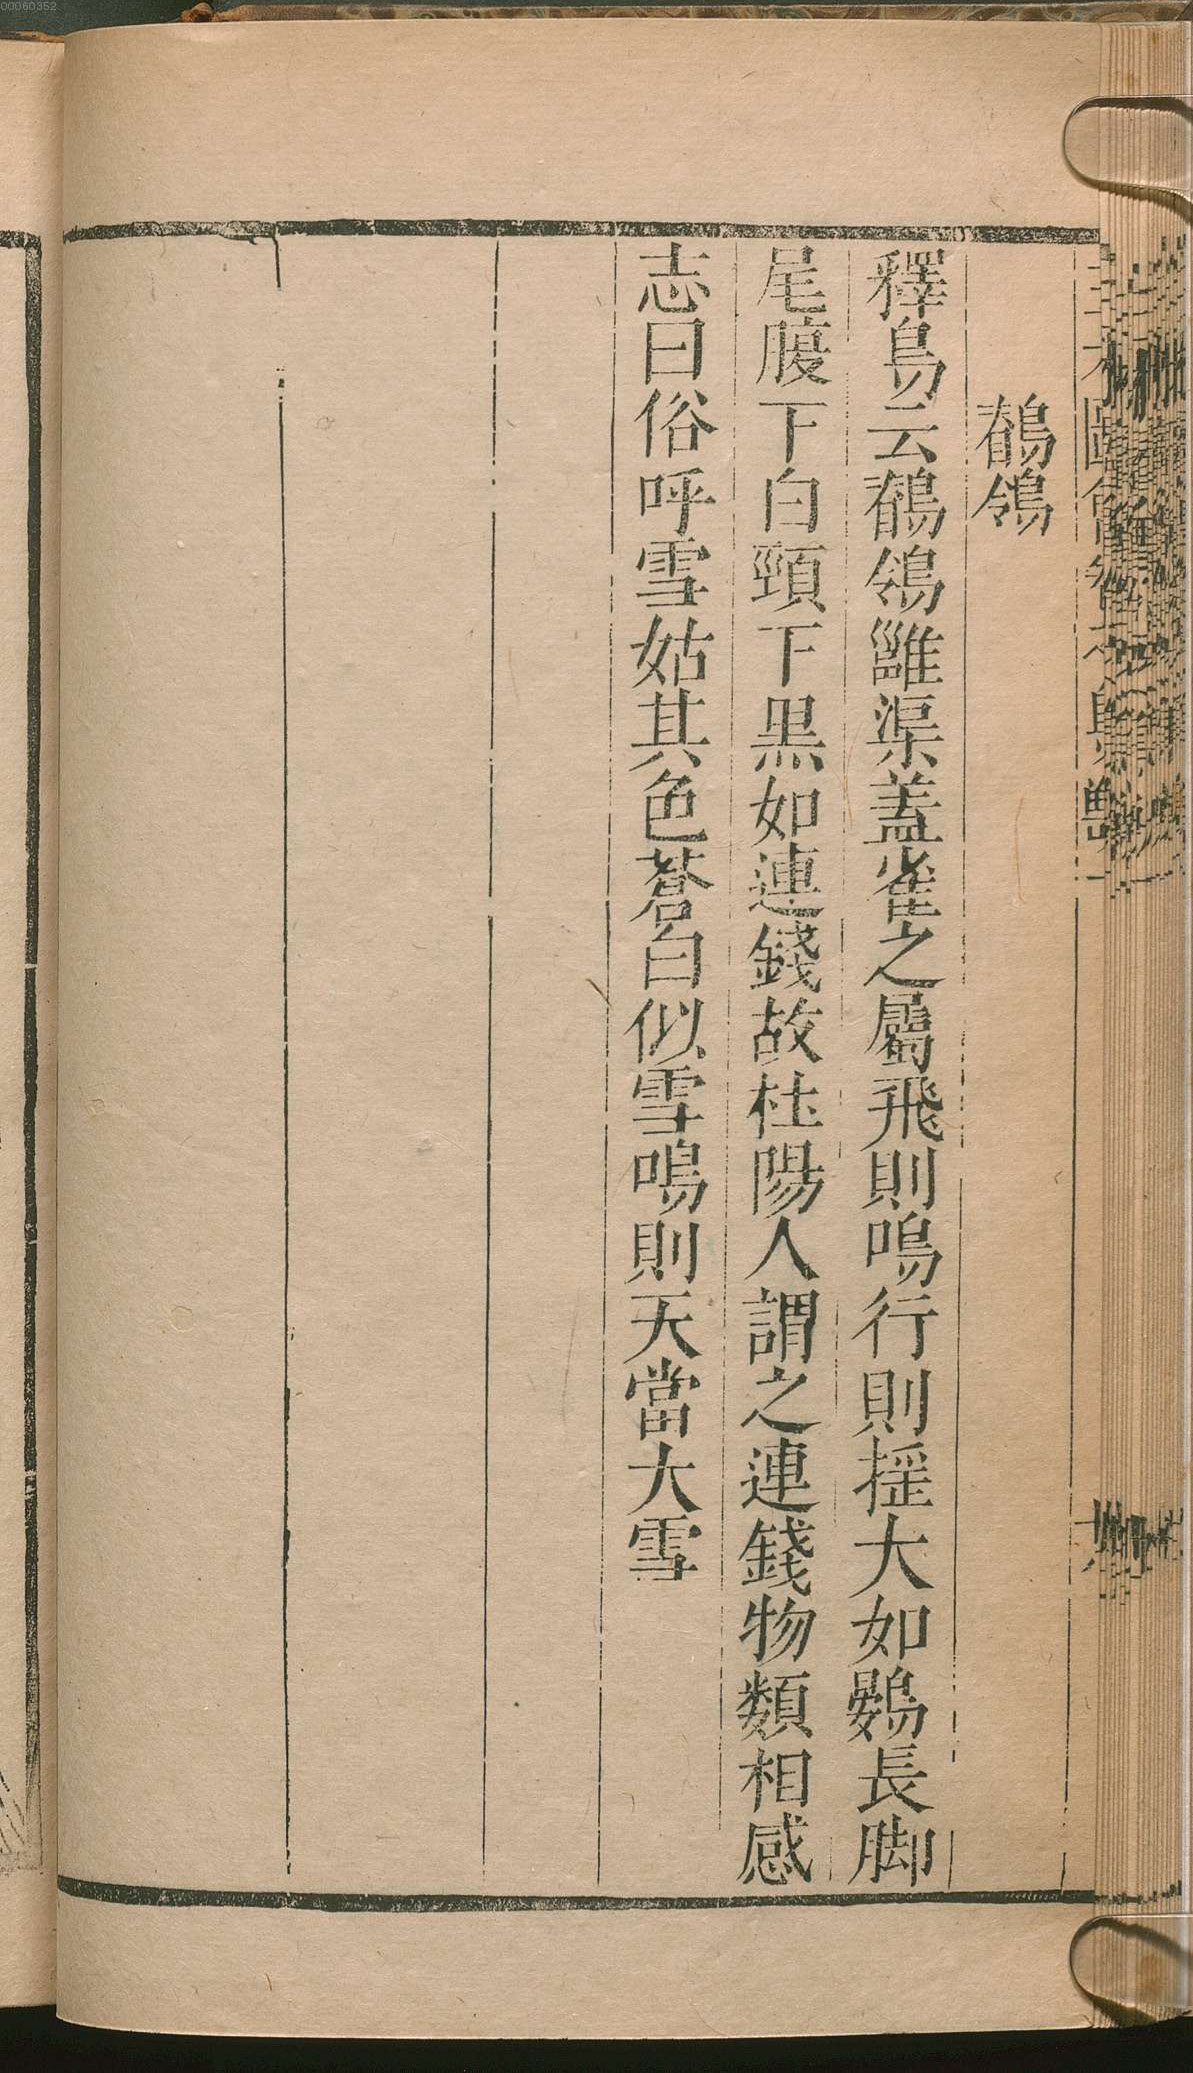 00060352
鶺鴒
釋鳥云鶺鴒雝渠蓋雀之屬飛則鳴行則揺大如鷃長脚
尾腹下白頸下黒如連錢故杜陽人謂之連錢物類相感
志曰俗呼雪姑其色蒼白似雪鳴則天當大雪